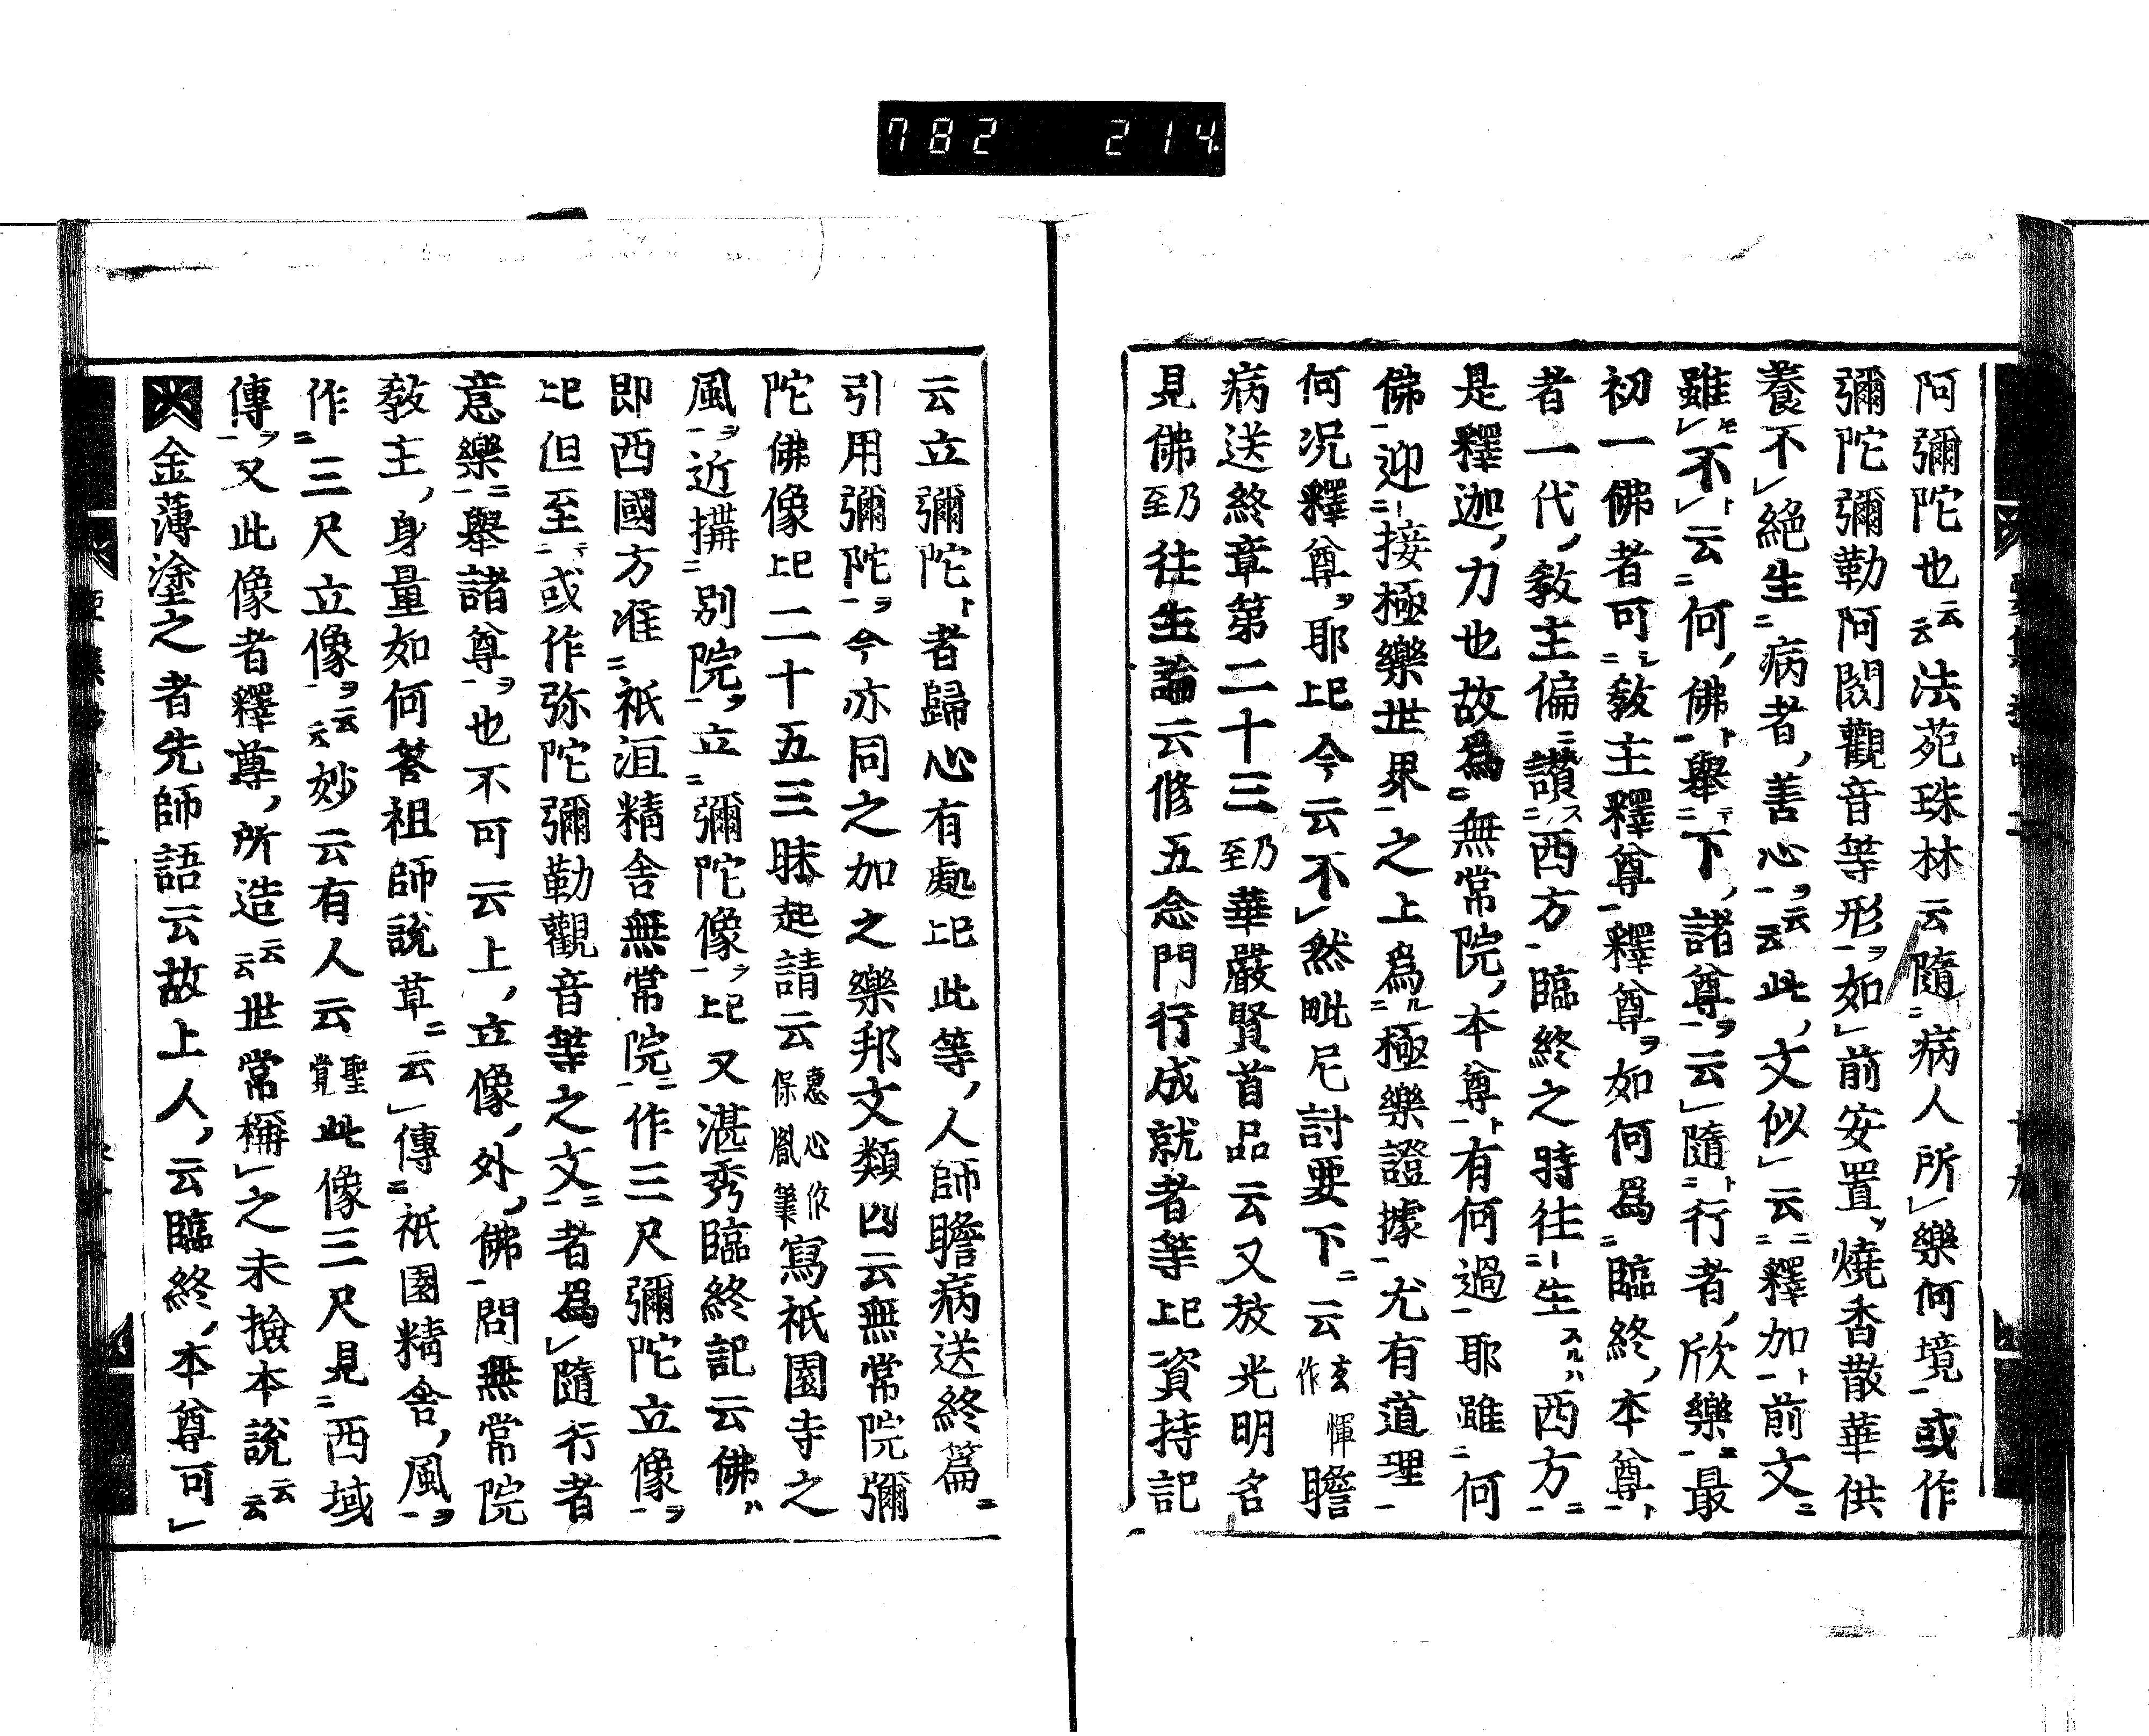 782 214.
阿彌陀也云云法苑珠林云隨病人所樂何境或作
彌陀彌勒阿閦觀音等形如前安置燒香散華供
養不絶生病者善心云云此文似云釋加前文
雖不云何佛擧下諸尊云隨行者欣樂最
初一佛者可教主釋尊釋尊如何爲臨終本尊
者一代教主偏讃西方臨終之時往生西方
是釋迦力也故爲無常院本尊有何過耶雖何
佛迎接極樂世界之上爲極樂證據尤有道理
何況釋尊耶已上今云不然毗尼討要下云玄惲作瞻
病送終章第二十三乃至華嚴賢首品云又放光明名
見佛乃至往生論云修五念門行成就者等已上資持記
云立彌陀者歸心有處已上此等人師瞻病送終篇
引用彌陀今亦同之加之樂邦文類四云無常院彌
陀佛像已上二十五三昧起請云惠心作保胤筆寫祇園寺之
風近搆別院立彌陀像已上又湛秀臨終記云佛
即西國方准祇洹精舍無常院作三尺彌陀立像
已上但至或作弥陀彌勒觀音等之文者爲隨行者
意樂擧諸尊也不可云上立像外佛問無常院
敎主身量如何荅祖師說草云傳祇園精舍風
作三尺立像云云妙云有人云聖覚此像三尺見西域
傳又此像者釋尊所造云云世常稱之未撿本說云云
金薄塗之者先師語云故上人云臨終本尊可